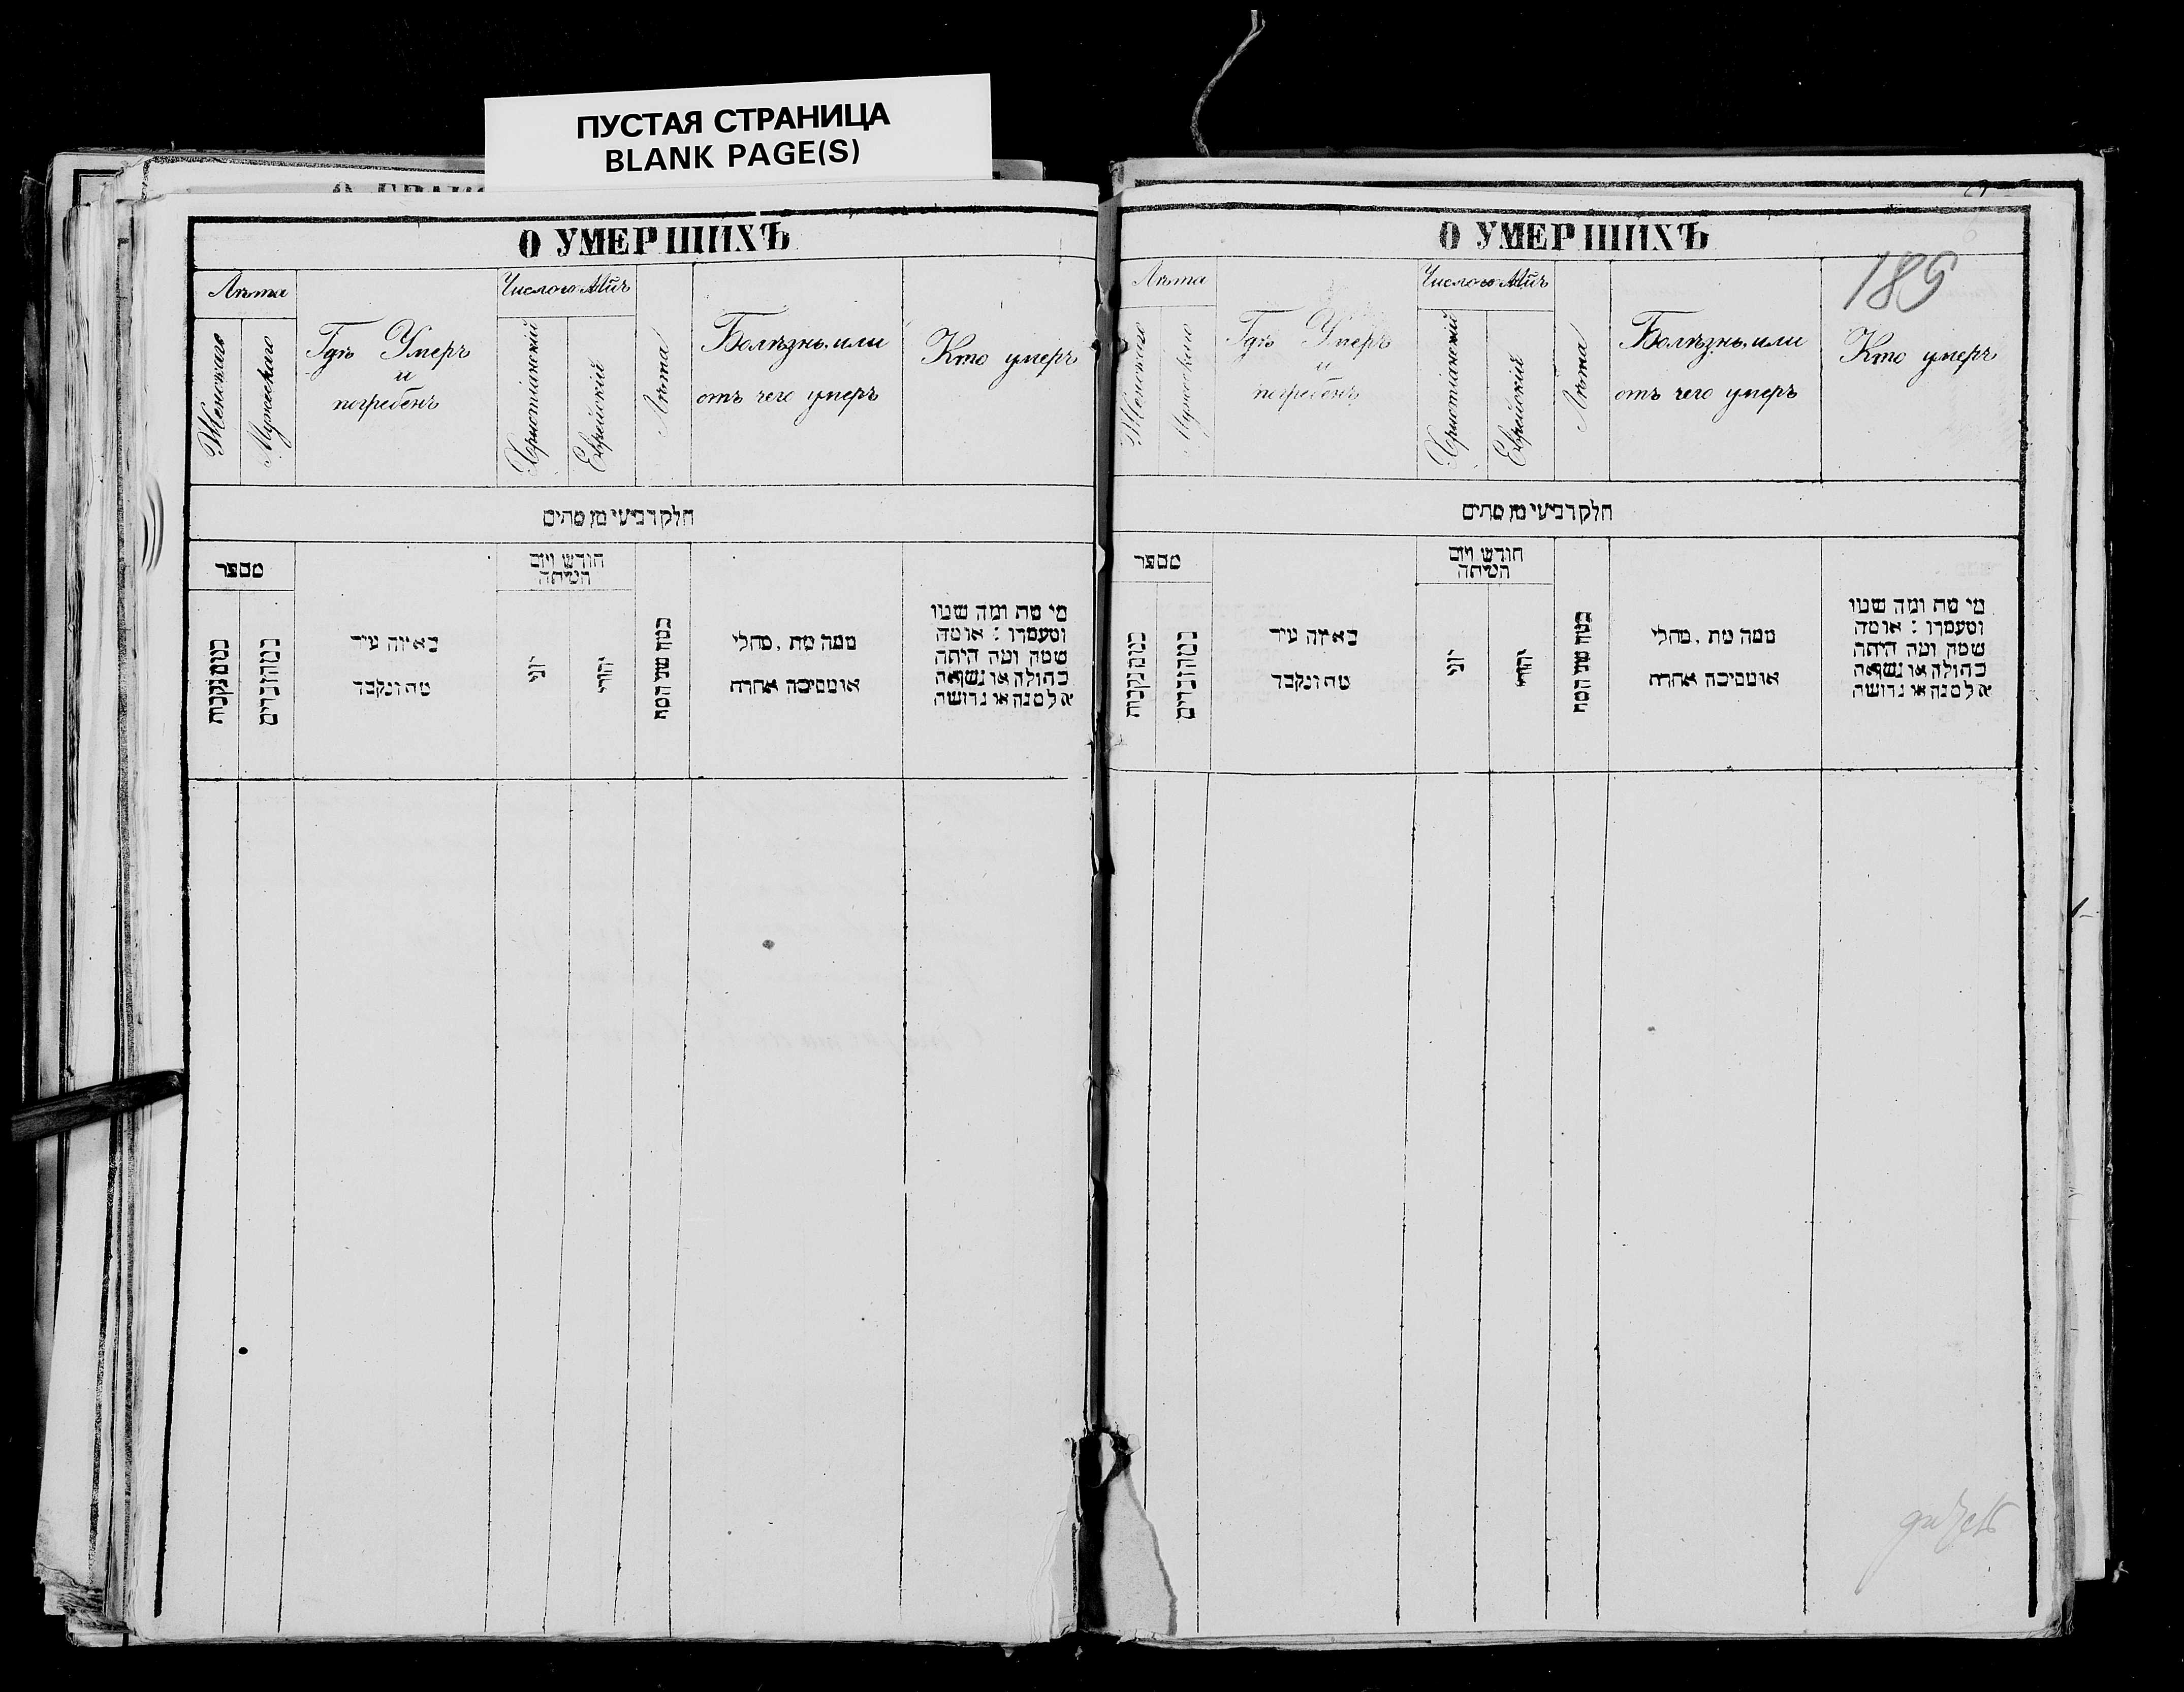 ПУСТАЯ СТРАНИЦА
BLANK PAGE(S)
О УМЕРШИХЪ
Лѣта
Женскаго
Мужескаго
Гдѣ Умеръ
и
погребенъ
Число и Мцъ
Христіанскій
Еврейскій
Лѣта
Болѣзнь или
отъ чего умеръ
Кто умеръ
חלק רביעי מן מתים
מספר
כמה נקבות
כמה זכרים
באיזה עיר
מת ונקבר
חודש ויום
המיתה
יוני
יהודי
כמה שני המת
ממה מת, מחלי
או מסיבה אחרת
מי מת ומה שמו
ומעמדו : או מה
שמה ומה היתה
בתולה או נשואה
אלמנה או גרושה
О УМЕРШИХЪ
189
Лѣта
Женскаго
Мужескаго
Гдѣ Умеръ
и
погребенъ
Число и Мцъ
Христіанскій
Еврейскій
Лѣта
Болѣзнь или
отъ чего умеръ
Кто умеръ
חלק רביעי מן מתים
מספר
כמה נקבות
כמה זכרים
באיזה עיר
מת ונקבר
חודש ויום
המיתה
יוני
יהודי
כמה שני המת
ממה מת, מחלי
או מסיבה אחרת
מי מת ומה שמו
ומעמדו : או מה
שמה ומה היתה
בתולה או נשואה
אלמנה או גרושה